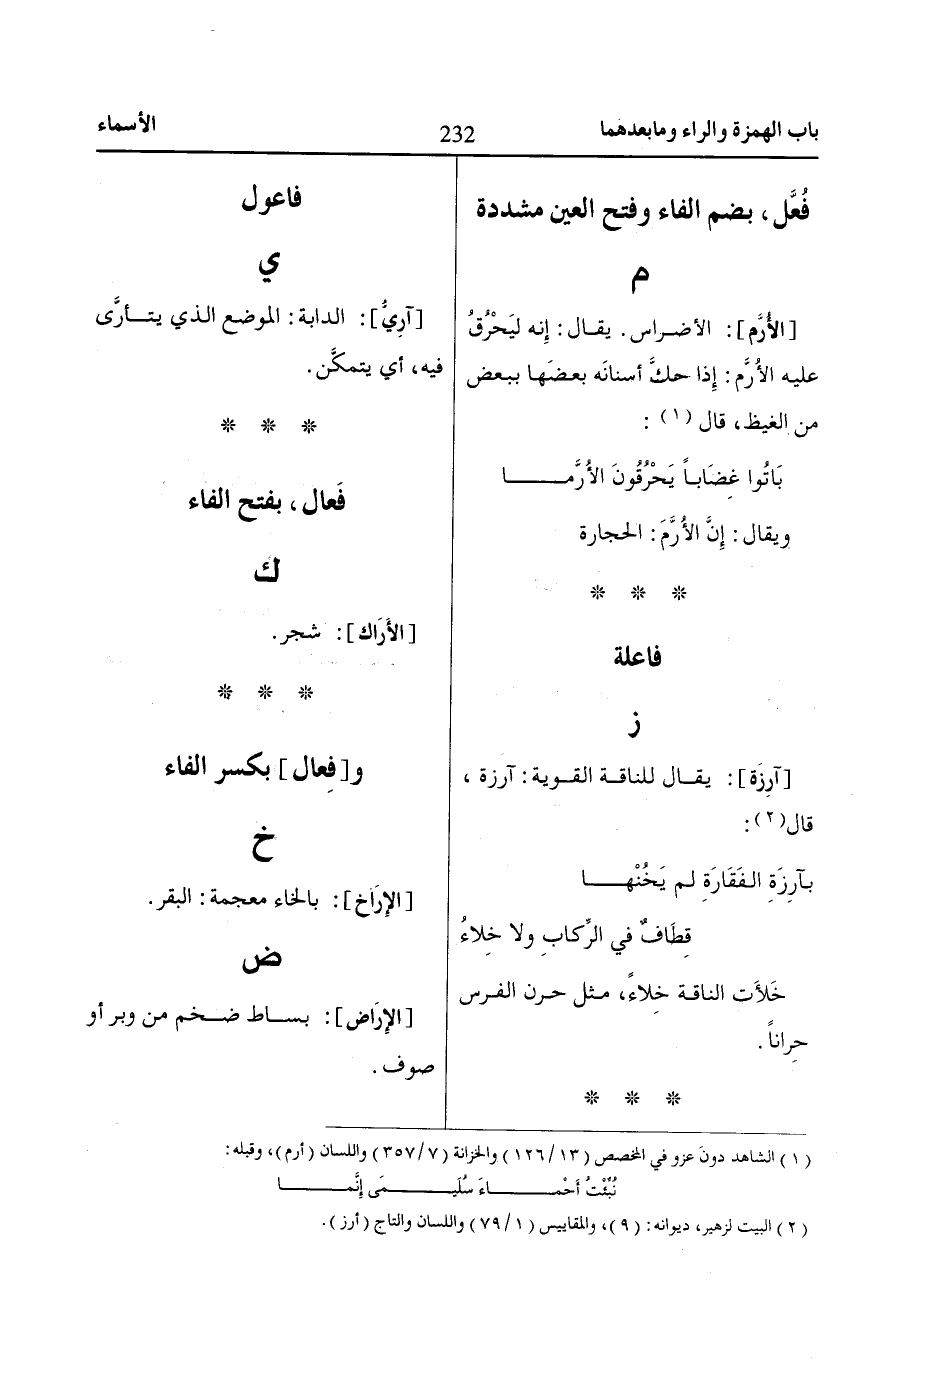 باب الهمزة والراء ومابعدهما
232
الأسماء
فُعَّل، بضم الفاء وفتح العين مشددة
م
[الأُرَّم]: الأضراس. يقال: إنه ليَحْرُقُ
عليه الأُرَّم: إذا حكَّ أسنانَه بعضَها ببعض
من الغيظ، قال (١) :
بَاتُوا غِضَاباً يَحْرُقُونَ الأُرَّمــا
ويقال: إنَّ الأُرَّمَ: الحجارة
* * *
فاعلة
ز
[آرِزَة]: يقال للناقة القوية: آرزة ،
قال(٢):
بـآرِزَةِ الفَقَارَةِ لم يَخُنْهـا
قِطَافٌ في الرِّكابِ ولا خِلاءُ
خَلأَت الناقة خلاءً، مثل حرن الفرس
حِراناً.
* * *
فاعول
ي
[آرِيُّ]: الدابة: الموضع الذي يتأرَّى
فيه، أي يتمكَّن.
* * *
فَعال، بفتح الفاء
ك
[الأَرَاك]: شجر.
* * *
و[فِعال] بكسر الفاء
خ
[الإِرَاخ]: بالخاء معجمة: البقر.
ض
[الإِرَاض]: بساط ضخم من وبر أو
صوف.
(١) الشاهد دون عزو في المخصص (١٢٦/١٣) والخزانة (٣٥٧/٧) واللسان (أرم)، وقبله:
نُبِّئْتُ أَحْمــاءَ سُلَيــمَى إِنَّمــا
(٢) البيت لزهير، ديوانه: (٩)، والمقاييس (٧٩/١) واللسان والتاج (أرز).